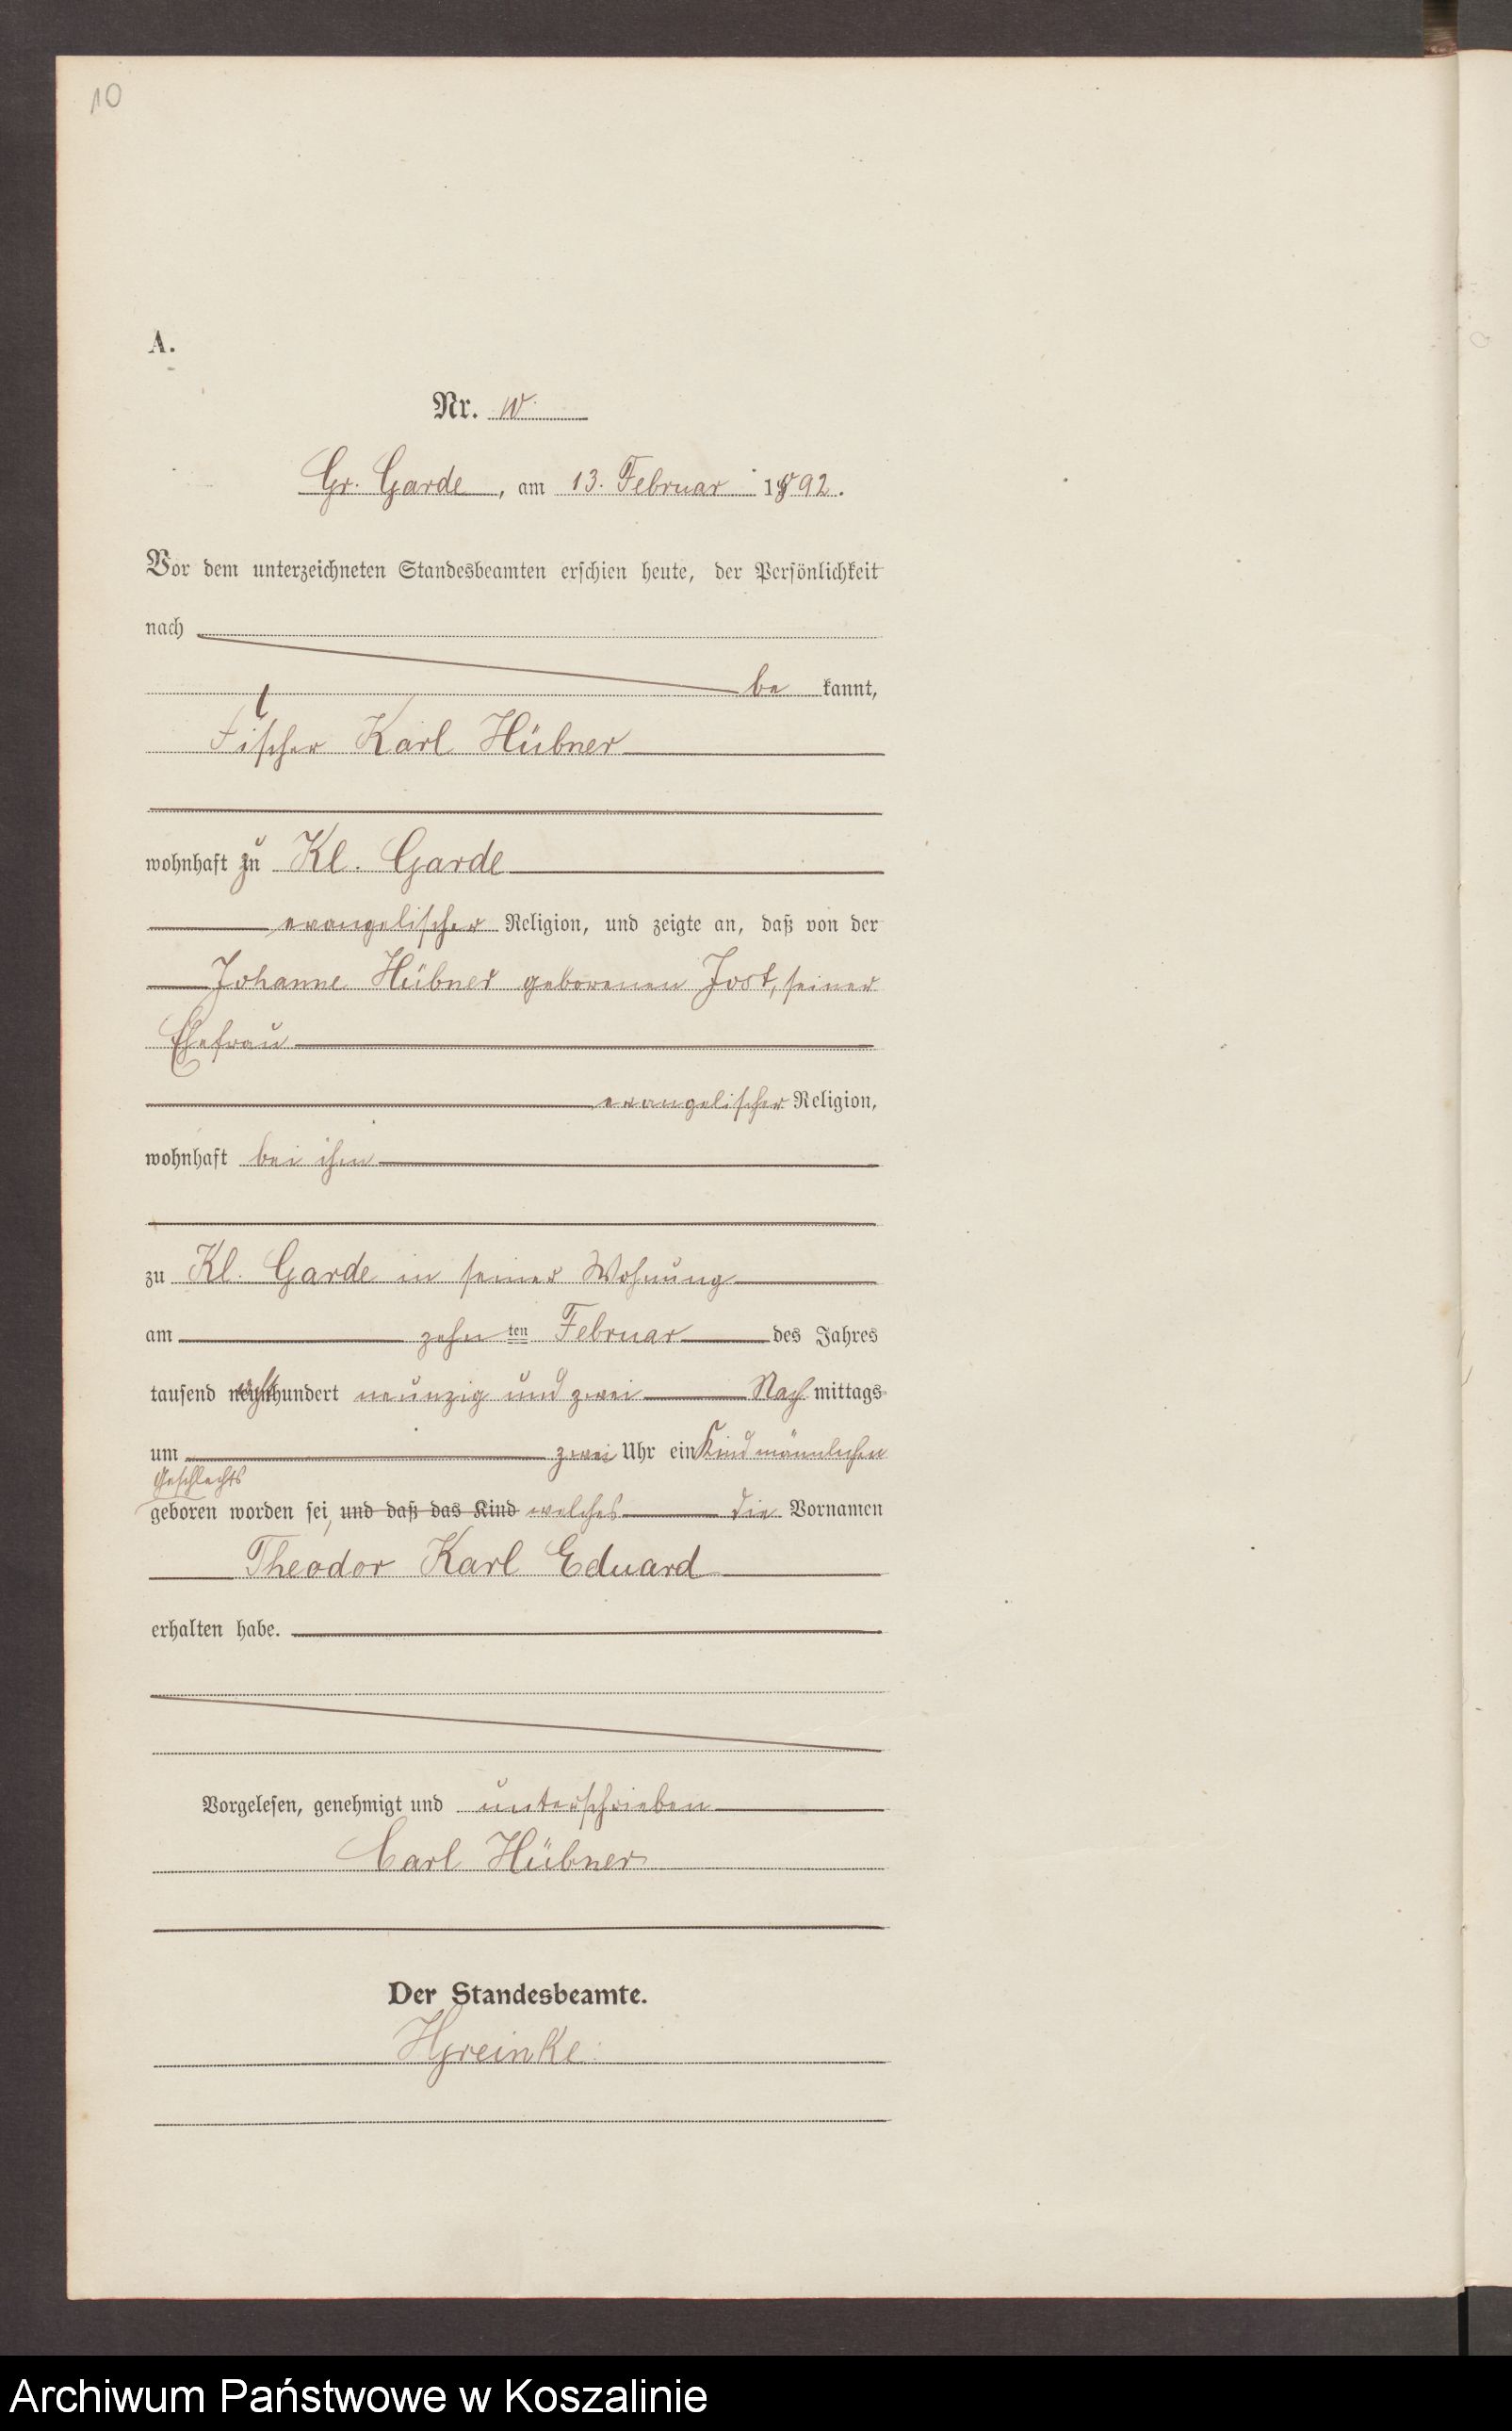 10
A.
Nr. 10.
Gr. Garde, am 13. Februar 1892.
Vor dem unterzeichneten Standesbeamten erschien heute, der Persönlichkeit
nach
be kannt,
Fischer Karl Hübner
wohnhaft zu Kl. Garde
evangelischer Religion, und zeigte an, daß von der
Johanne Hübner geborenen Jost, seiner
Ehefrau
evangelischer Religion,
wohnhaft bei ihm
zu Kl. Garde in seiner Wohnung
am zehn ten Februar des Jahres
tausend achthundert neunzig und zwei Nach mittags
um zwei Uhr ein Kind männlichen
Geschlechts
geboren worden sei, und daß das Kind welches die Vornamen
Theodor Karl Eduard
erhalten habe.
Vorgelesen, genehmigt und unterschrieben
Carl Hübner
Der Standesbeamte.
HGreinke.
Archiwum Państwowe w Koszalinie